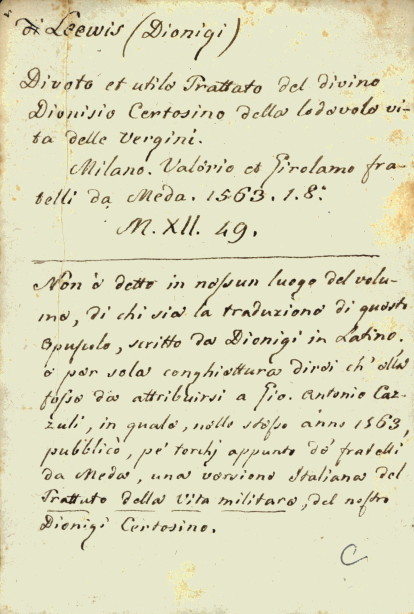 di Leewis (Dionigi)
Divoto et utile Trattato del divino
Dionisio Certosino della lodevole vi-
ta delle Vergini.
Milano. Valério et Girolamo fra-
telli da Meda. 1563. 1. 8.°
M. XII. 49.
Non è detto in nessun luogo del volu-
me, di chi sia la traduzione di questo
opuscolo, scritto da Dionigi in Latino.
e per sola conghiettura direi ch' ella
fosse da attribuirsi a Gio. Antonio Caz-
zuli, in quale, nello stesso anno 1563,
pubblicò, pe' torchj appunto de' fratelli
da Meda, una versione Italiana del
Trattato della Vita militare, del nostro
Dionigi Certosino.
C